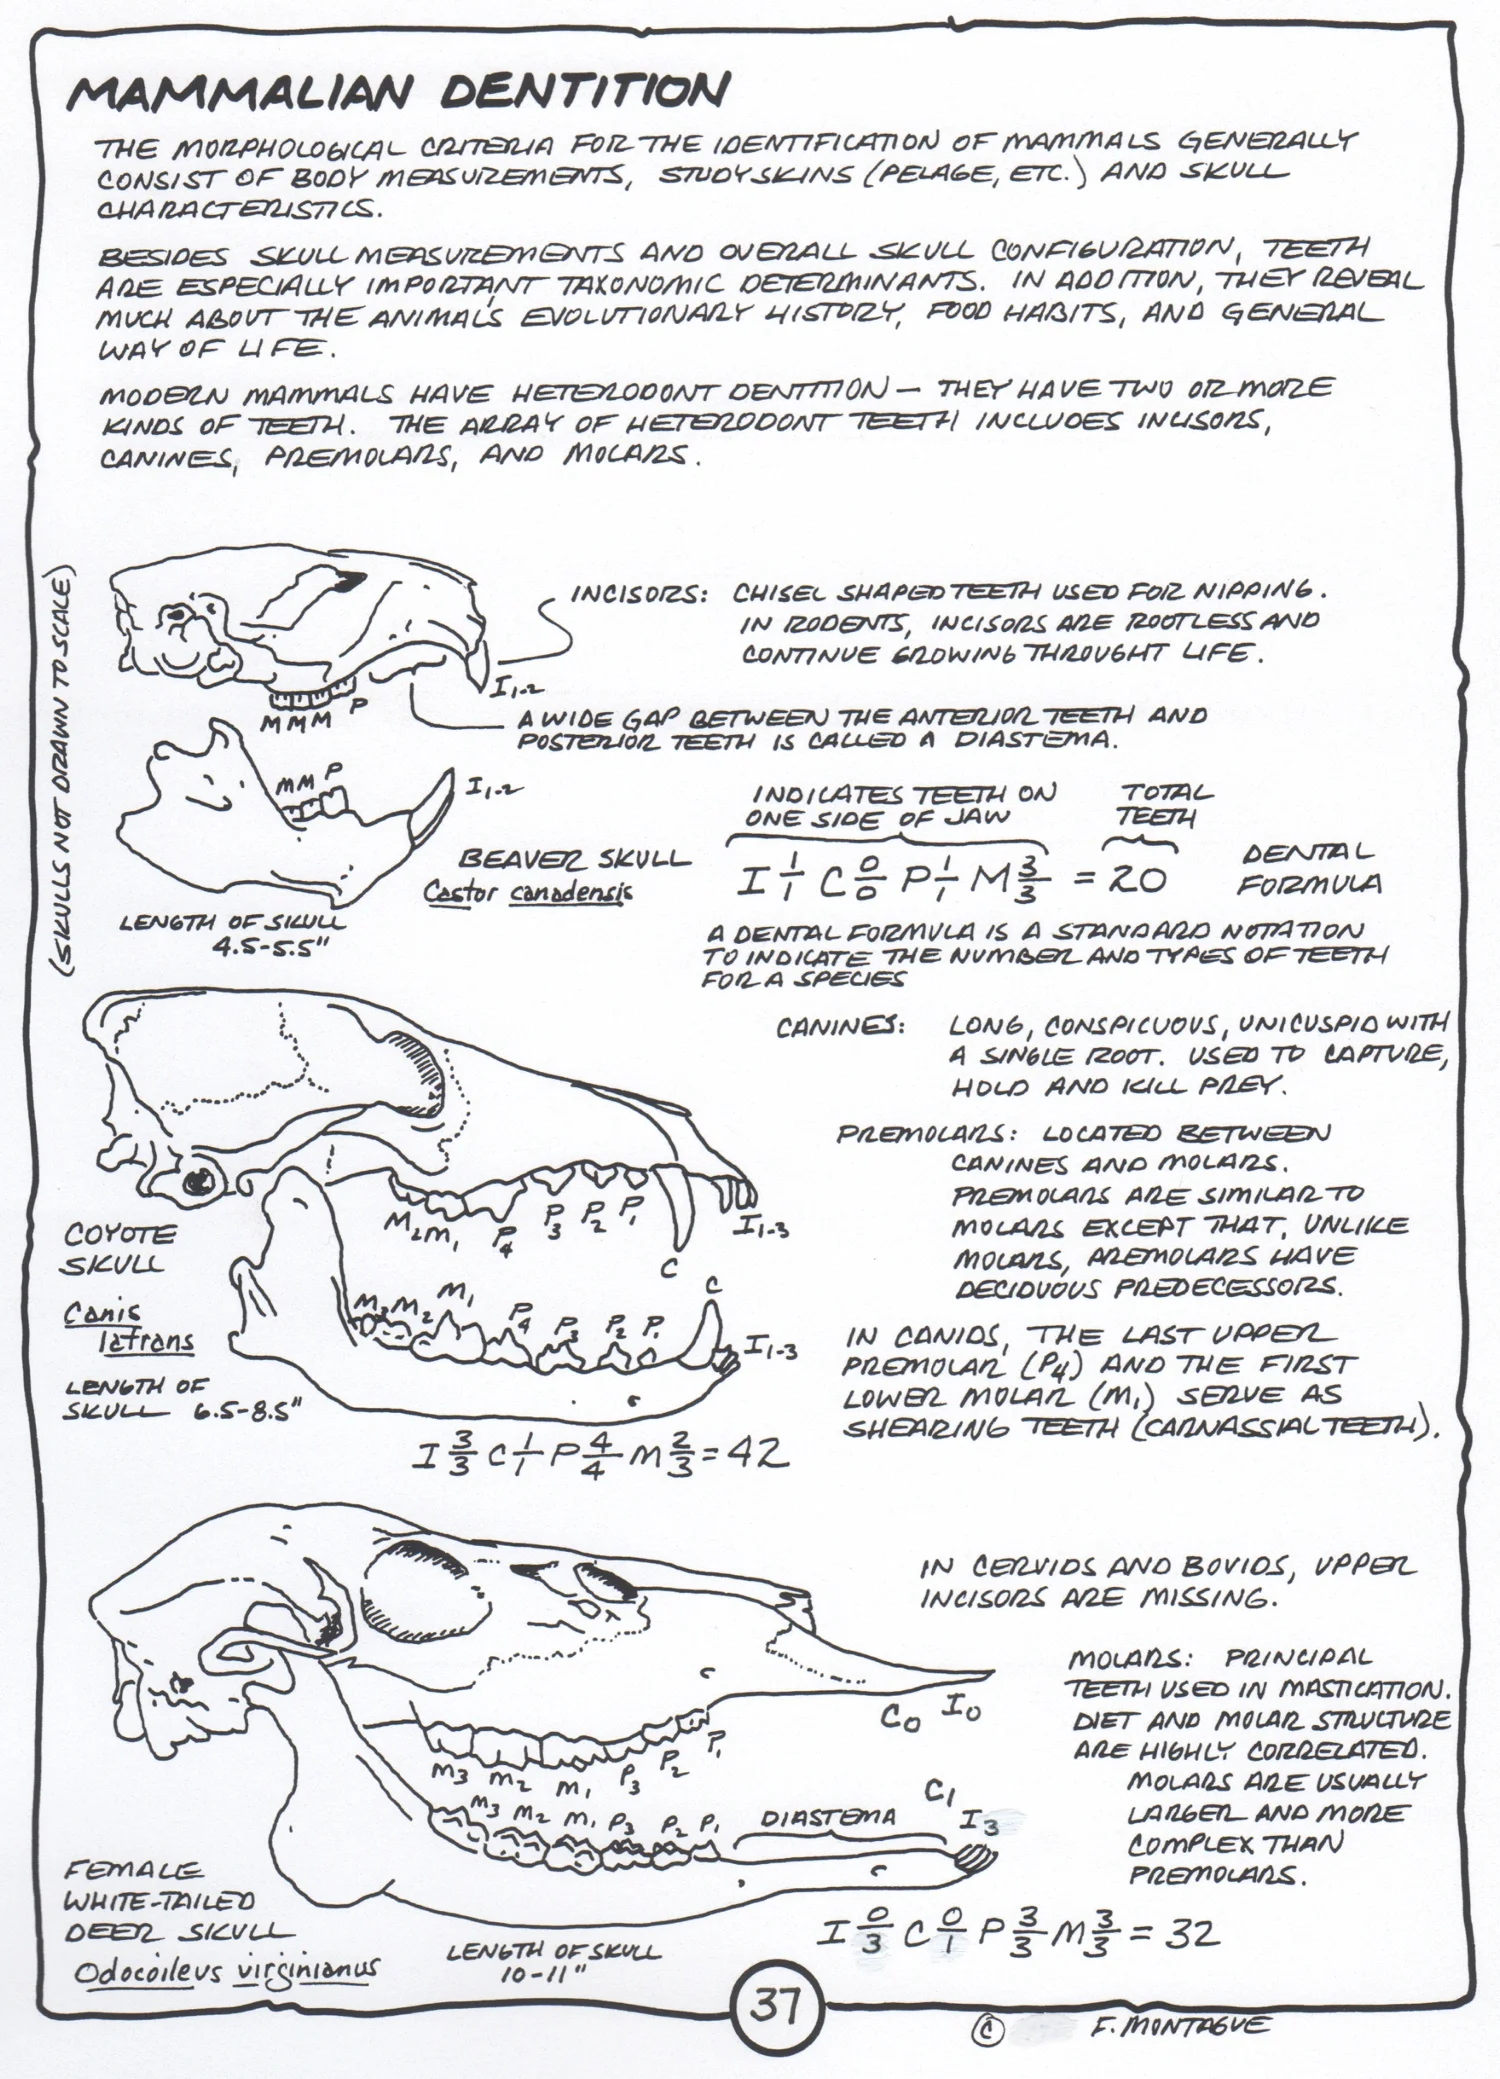 MAMMALIAN DENTITION
THE MORPHOLOGICAL CRITERIA FOR THE IDENTIFICATION OF MAMMALS GENERALLY
CONSIST OF BODY MEASUREMENTS, STUDY SKINS (PELAGE, ETC.) AND SKULL
CHARACTERISTICS.
BESIDES SKULL MEASUREMENTS AND OVERALL SKULL CONFIGURATION, TEETH
ARE ESPECIALLY IMPORTANT TAXONOMIC DETERMINANTS. IN ADDITION, THEY REVEAL
MUCH ABOUT THE ANIMAL'S EVOLUTIONARY HISTORY, FOOD HABITS, AND GENERAL
WAY OF LIFE.
MODERN MAMMALS HAVE HETERODONT DENTITION — THEY HAVE TWO OR MORE
KINDS OF TEETH. THE ARRAY OF HETERODONT TEETH INCLUDES INCISORS,
CANINES, PREMOLARS, AND MOLARS.
(SKULLS NOT DRAWN TO SCALE)
INCISORS: CHISEL SHAPED TEETH USED FOR NIPPING.
IN RODENTS, INCISORS ARE ROOTLESS AND
CONTINUE GROWING THROUGHT LIFE.
I1-2
M M M P
A WIDE GAP BETWEEN THE ANTERIOR TEETH AND
POSTERIOR TEETH IS CALLED A DIASTEMA.
M M P
I1-2
INDICATES TEETH ON
ONE SIDE OF JAW
TOTAL
TEETH
BEAVER SKULL
Castor canadensis
I 1/1 C 0/0 P 1/1 M 3/3 = 20
DENTAL
FORMULA
LENGTH OF SKULL
4.5-5.5"
A DENTAL FORMULA IS A STANDARD NOTATION
TO INDICATE THE NUMBER AND TYPES OF TEETH
FOR A SPECIES
CANINES: LONG, CONSPICUOUS, UNICUSPID WITH
A SINGLE ROOT. USED TO CAPTURE,
HOLD AND KILL PREY.
PREMOLARS: LOCATED BETWEEN
CANINES AND MOLARS.
PREMOLARS ARE SIMILAR TO
MOLARS EXCEPT THAT, UNLIKE
MOLARS, PREMOLARS HAVE
DECIDUOUS PREDECESSORS.
M2 M1 P4 P3 P2 P1 C I1-3
COYOTE
SKULL
Canis
latrans
LENGTH OF
SKULL 6.5-8.5"
M3 M2 M1 P4 P3 P2 P1 C I1-3
IN CANIDS, THE LAST UPPER
PREMOLAR (P4) AND THE FIRST
LOWER MOLAR (M1) SERVE AS
SHEARING TEETH (CARNASSIAL TEETH).
I 3/3 C 1/1 P 4/4 M 2/3 = 42
IN CERVIDS AND BOVIDS, UPPER
INCISORS ARE MISSING.
MOLARS: PRINCIPAL
TEETH USED IN MASTICATION.
DIET AND MOLAR STRUCTURE
ARE HIGHLY CORRELATED.
MOLARS ARE USUALLY
LARGER AND MORE
COMPLEX THAN
PREMOLARS.
C0 I0
M3 M2 M1 P3 P2 P1
M3 M2 M1 P3 P2 P1 DIASTEMA C1 I3
FEMALE
WHITE-TAILED
DEER SKULL
Odocoileus virginianus
LENGTH OF SKULL
10-11"
I 0/3 C 0/1 P 3/3 M 3/3 = 32
37
© F. MONTAGUE